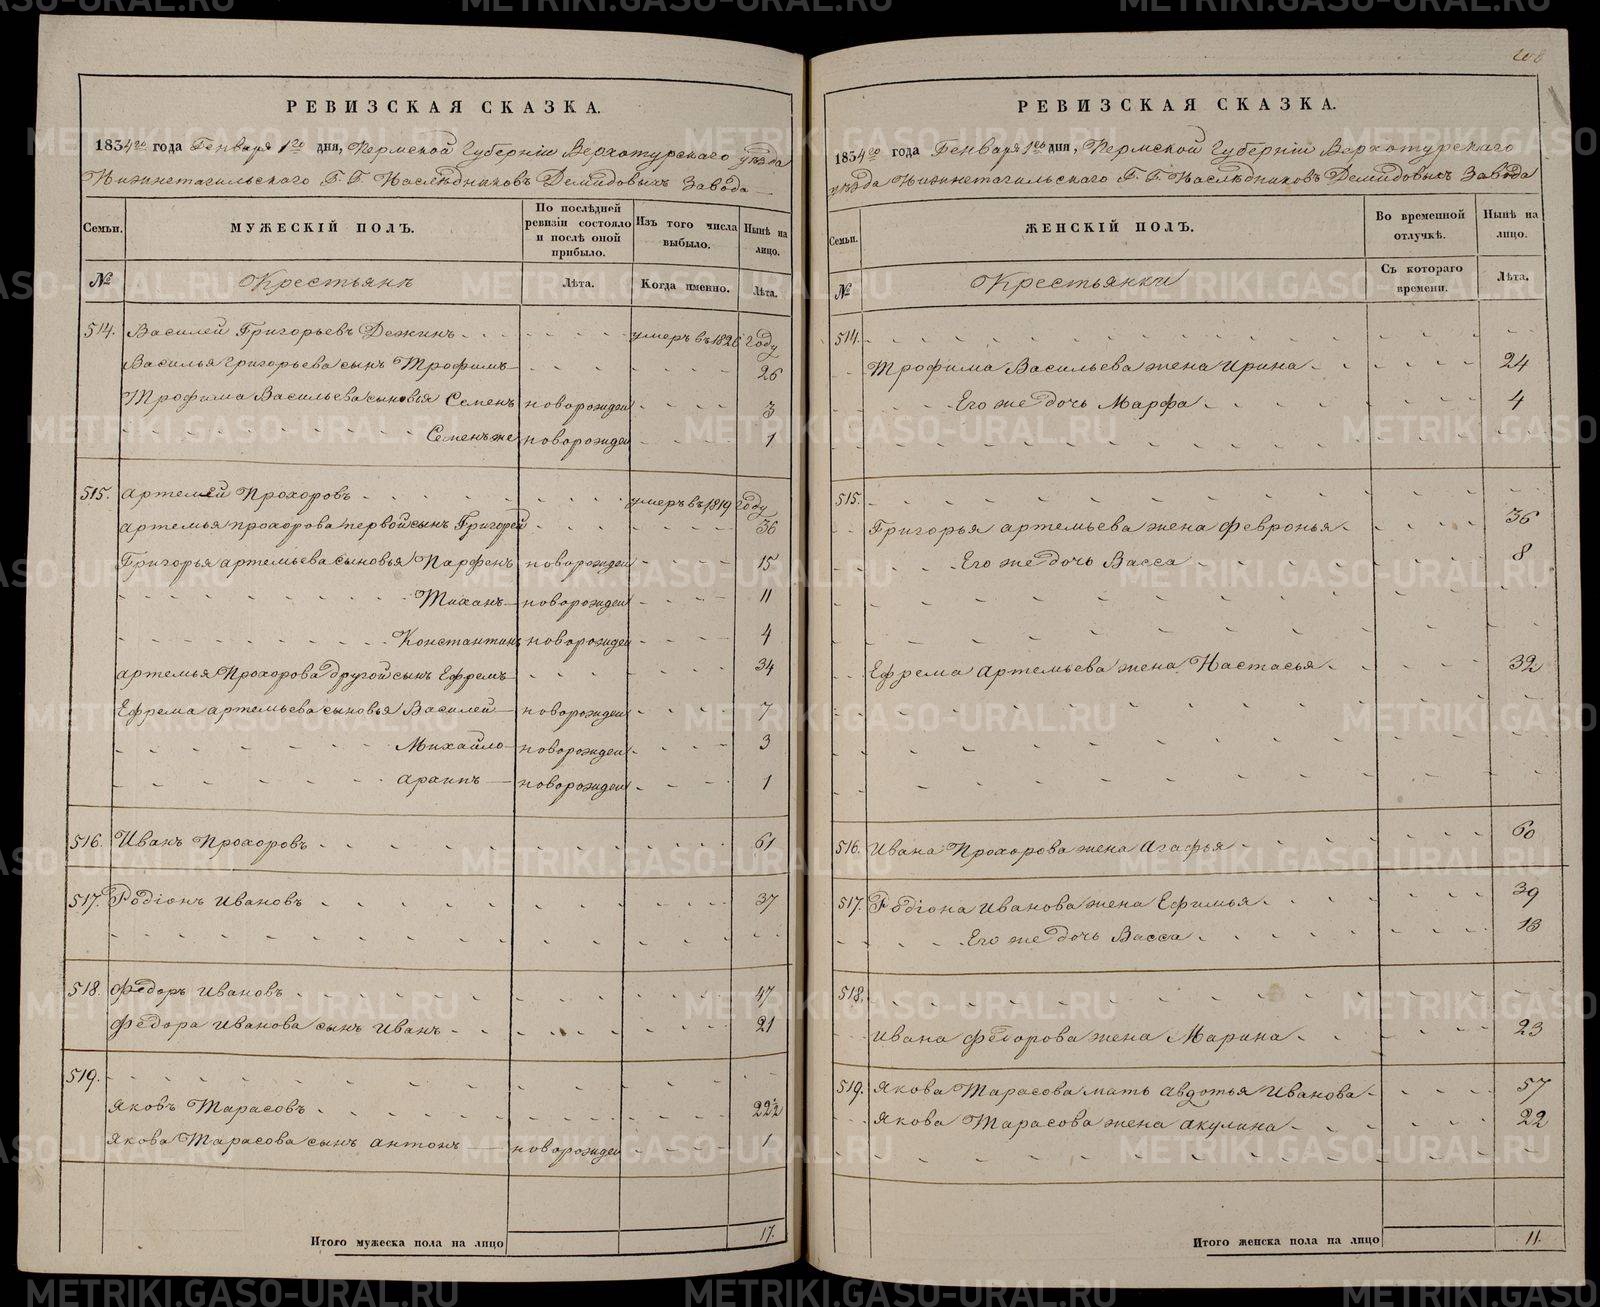 208
РЕВИЗСКАЯ СКАЗКА.
1834го года Генваря 1го дня, Пермской Губерніи Верхотурскаго уѣзда
Нижнетагильскаго Г.Г. Наслѣдниковъ Демидовыхъ Завода
Семьи.
МУЖЕСКІЙ ПОЛЪ.
По послѣдней ревизіи состояло и послѣ оной прибыло.
Изъ того числа выбыло.
Нынѣ на лицо.
№
Крестьянъ
Лѣта.
Когда именно.
Лѣта.
514. Василей Григорьевъ Дежинъ умеръ въ 1826 году
Василья Григорьева сынъ Трофимъ 26
Трофима Васильева сыновья Семенъ новорожден 3
Семенъ же новорожден 1
515. Артемей Прохоровъ умеръ въ 1819 году
Артемья Прохорова первой сынъ Григорей 36
Григорья Артемьева сыновья Парфенъ новорожден 15
Тиханъ новорожден 11
Константинъ новорожден 4
Артемья Прохорова другой сынъ Ефремъ 34
Ефрема Артемьева сыновья Василей новорожден 7
Михайло новорожден 3
Архипъ новорожден 1
516. Иванъ Прохоровъ 61
517. Родіонъ Ивановъ 37
518. Федоръ Ивановъ 47
Федора Иванова сынъ Иванъ 21
519.
Яковъ Тарасовъ 22
Якова Тарасова сынъ Антонъ новорожден 1
Итого мужеска пола на лицо 17.
РЕВИЗСКАЯ СКАЗКА.
1834го года Генваря 1го дня, Пермской Губерніи Верхотурскаго
уѣзда Нижнетагильскаго Г.Г. Наслѣдниковъ Демидовыхъ Завода
Семьи.
ЖЕНСКІЙ ПОЛЪ.
Во временной отлучкѣ.
Нынѣ на лицо.
№
Крестьянки
Съ котораго времени.
Лѣта.
514.
Трофима Васильева жена Ирина 24
Его же дочь Марфа 4
515.
Григорья Артемьева жена Февронья 36
Его же дочь Васса 8
Ефрема Артемьева жена Настасья 32
516. Ивана Прохорова жена Агафья 60
517. Родіона Иванова жена Ефимья 39
Его же дочь Васса 13
518.
Ивана Федорова жена Марина 23
519. Якова Тарасова мать Авдотья Иванова 57
Якова Тарасова жена Акулина 22
Итого женска пола на лицо 11.
METRIKI.GASO-URAL.RU